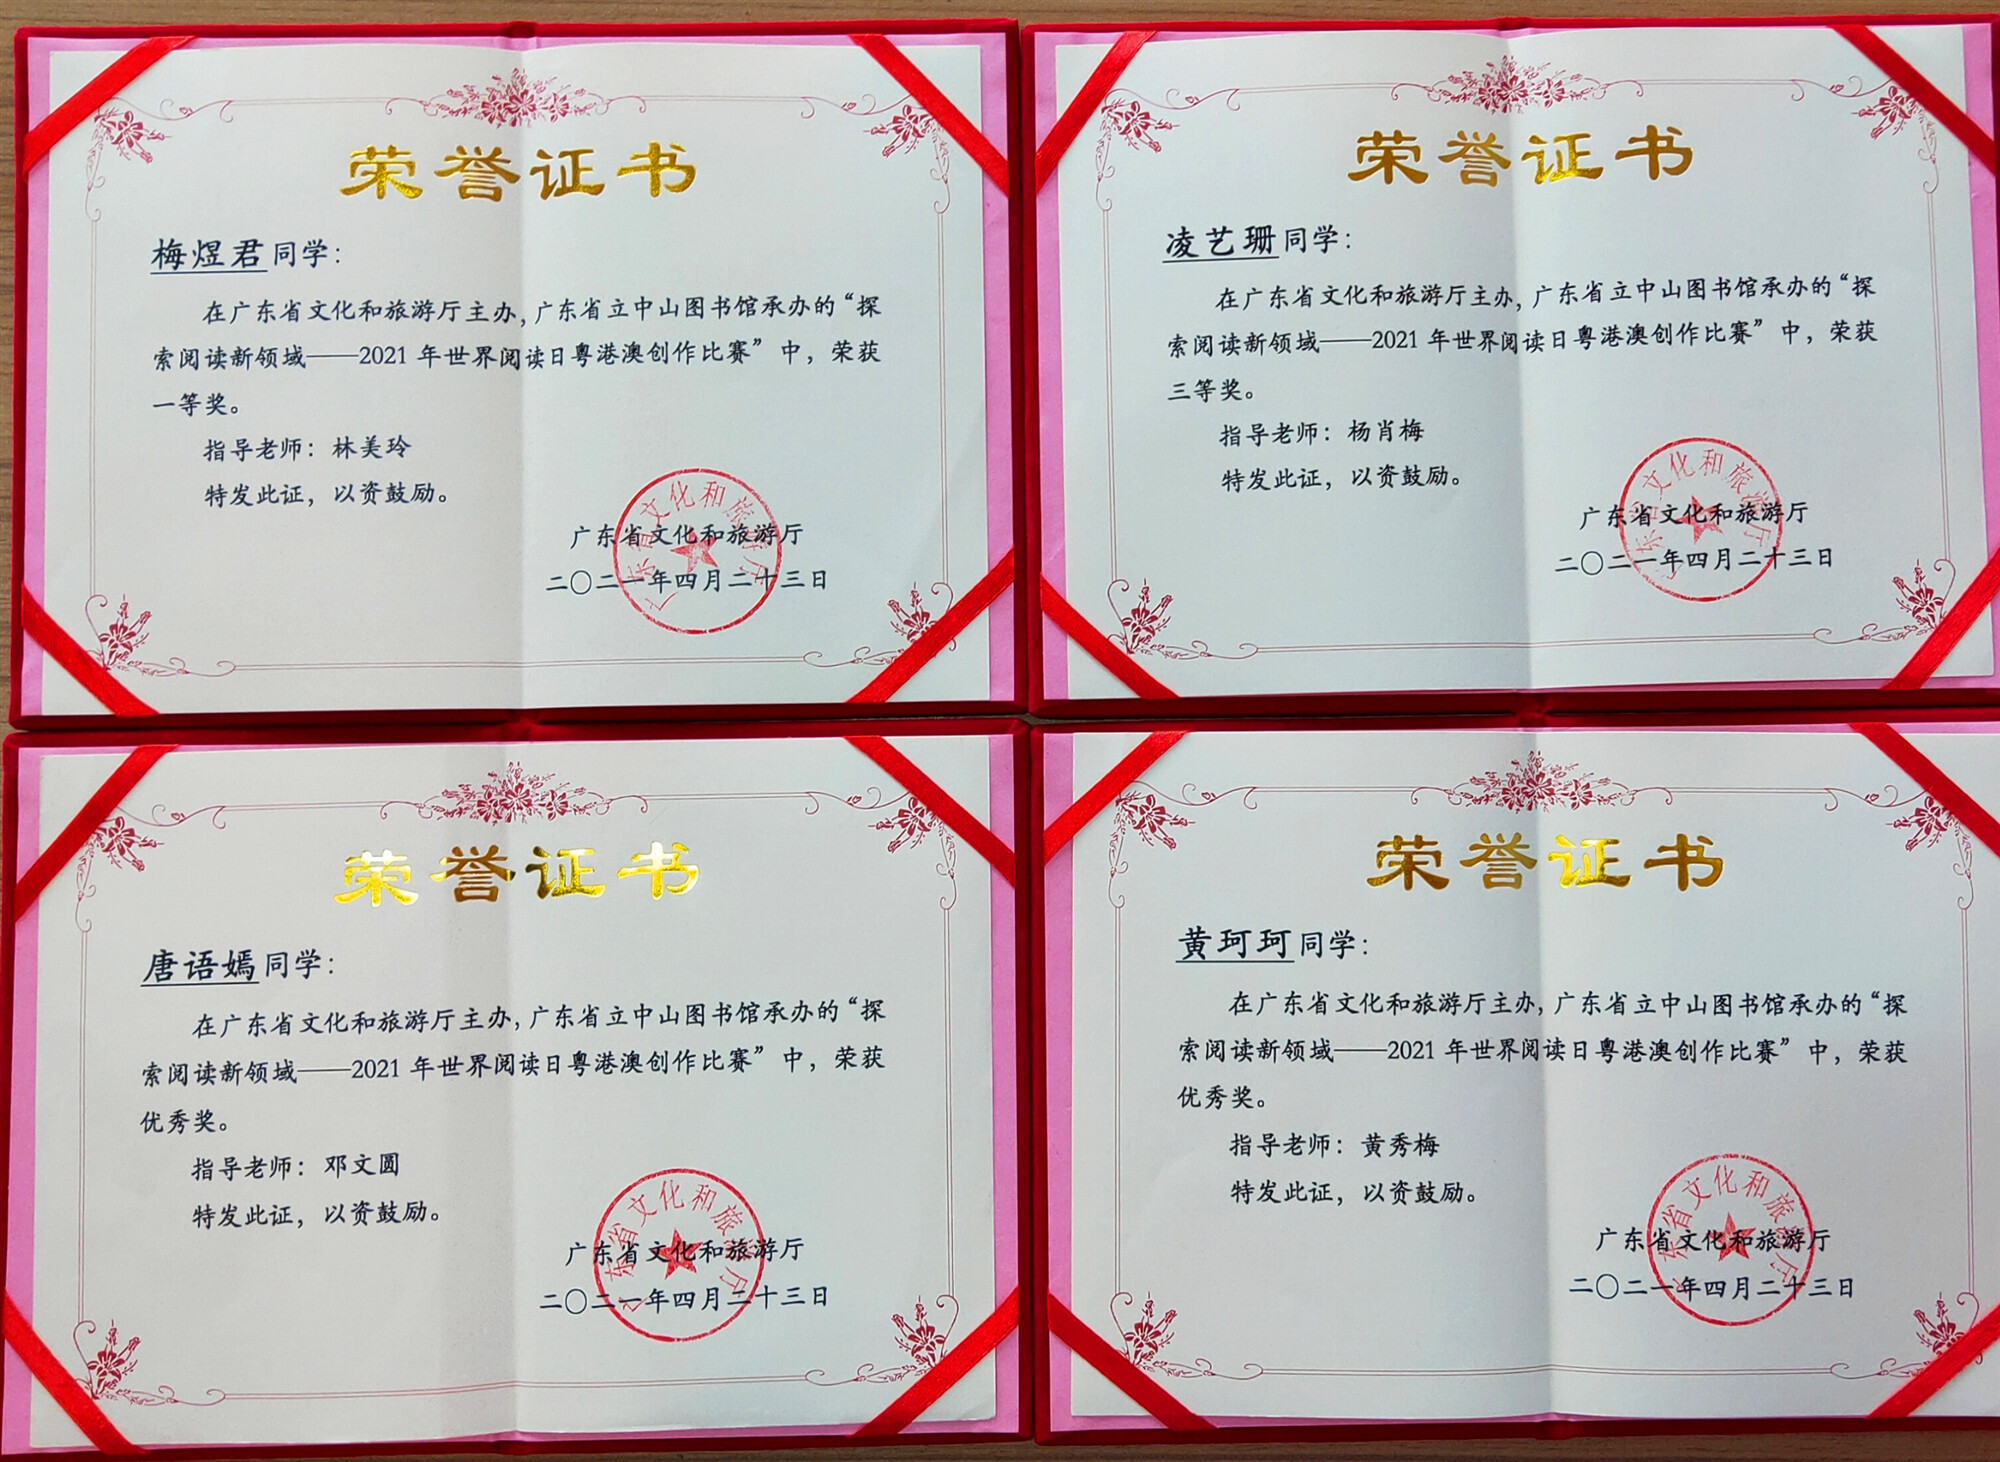 荣誉证书
梅煜君同学：
在广东省文化和旅游厅主办，广东省立中山图书馆承办的“探
索阅读新领域——2021年世界阅读日粤港澳创作比赛”中，荣获
一等奖。
指导老师：林美玲
特发此证，以资鼓励。
广东省文化和旅游厅
二〇二一年四月二十三日
广东省文化和旅游厅
荣誉证书
凌艺珊同学：
在广东省文化和旅游厅主办，广东省立中山图书馆承办的“探
索阅读新领域——2021年世界阅读日粤港澳创作比赛”中，荣获
三等奖。
指导老师：杨肖梅
特发此证，以资鼓励。
广东省文化和旅游厅
二〇二一年四月二十三日
广东省文化和旅游厅
荣誉证书
唐语嫣同学：
在广东省文化和旅游厅主办，广东省立中山图书馆承办的“探
索阅读新领域——2021年世界阅读日粤港澳创作比赛”中，荣获
优秀奖。
指导老师：邓文圆
特发此证，以资鼓励。
广东省文化和旅游厅
二〇二一年四月二十三日
广东省文化和旅游厅
荣誉证书
黄珂珂同学：
在广东省文化和旅游厅主办，广东省立中山图书馆承办的“探
索阅读新领域——2021年世界阅读日粤港澳创作比赛”中，荣获
优秀奖。
指导老师：黄秀梅
特发此证，以资鼓励。
广东省文化和旅游厅
二〇二一年四月二十三日
广东省文化和旅游厅